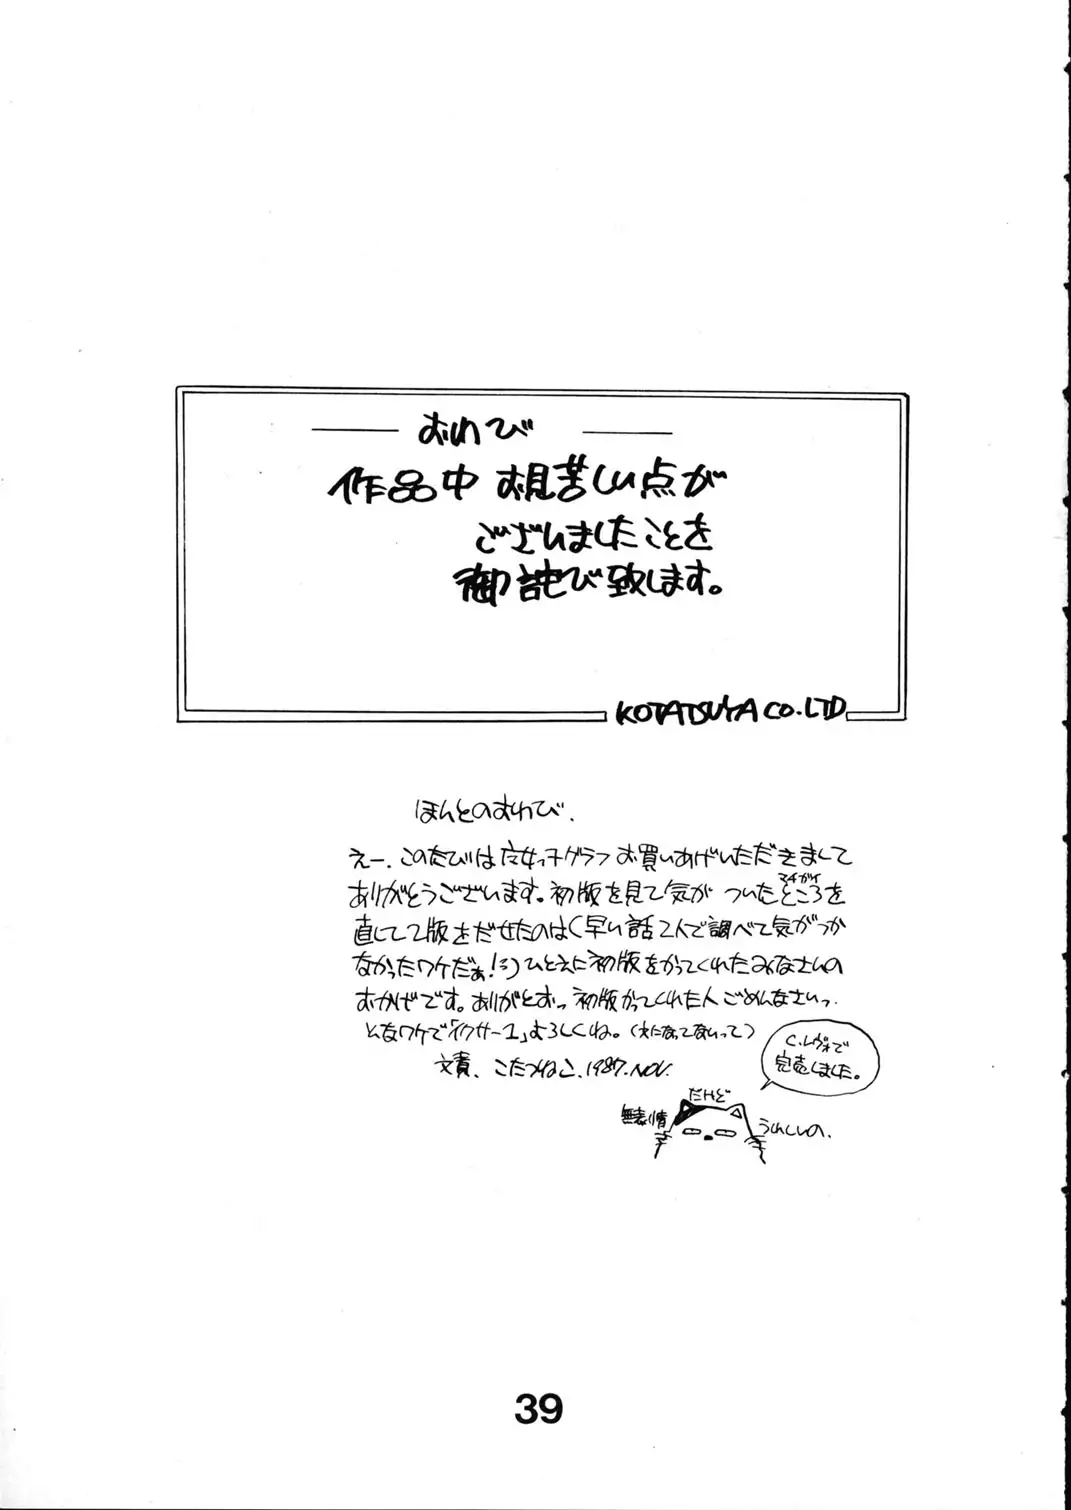 おわび
作品中 お見苦しい点が
ございましたことを
御詫び致します。
KOTATSUYA CO.LTD
ほんとのおわび.
えー. このたびは 女っ子グラフ お買いあげいただきまして
ありがとうございます。初版を見て気が ついたところを
マチガイ
直して2版をだせたのは(早い話2人で調べて気がつか
なかったワケだぁ!)ひとえに初版をかってくれたみなさいの
おかげです。ありがとおっ 初版かってくれた人 ごめんなさいっ.
とゆワケで「イクサー1」よろしくね。(えになってないって)
文責. こたつねこ. 1987. NOV.
C.レヴォで
完売しました。
だけど
無表情
うれしいの.
39